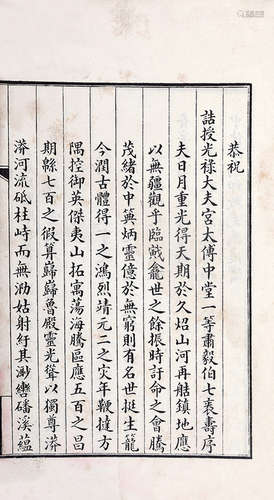 恭祝
誥授光祿大夫宮太傅中堂一等肅毅伯七袠壽序
夫日月重光得天期於久炤山河再䑛鎮地應
以無疆觀乎臨戴龕世之餘振時訐命之會騰
茂緒於中興炳靈億於無窮則有名世挺生籠
今潤古體得一之鴻烈靖元二之灾年鞭撻方
隅控御英傑夷山拓㝢蕩海騰區應五百之昌
期繇七百之假算歸巋魯殿靈光聳以獨尊漭
漭河流砥柱峙而無泐姑射紆其渺
磻溪蘊